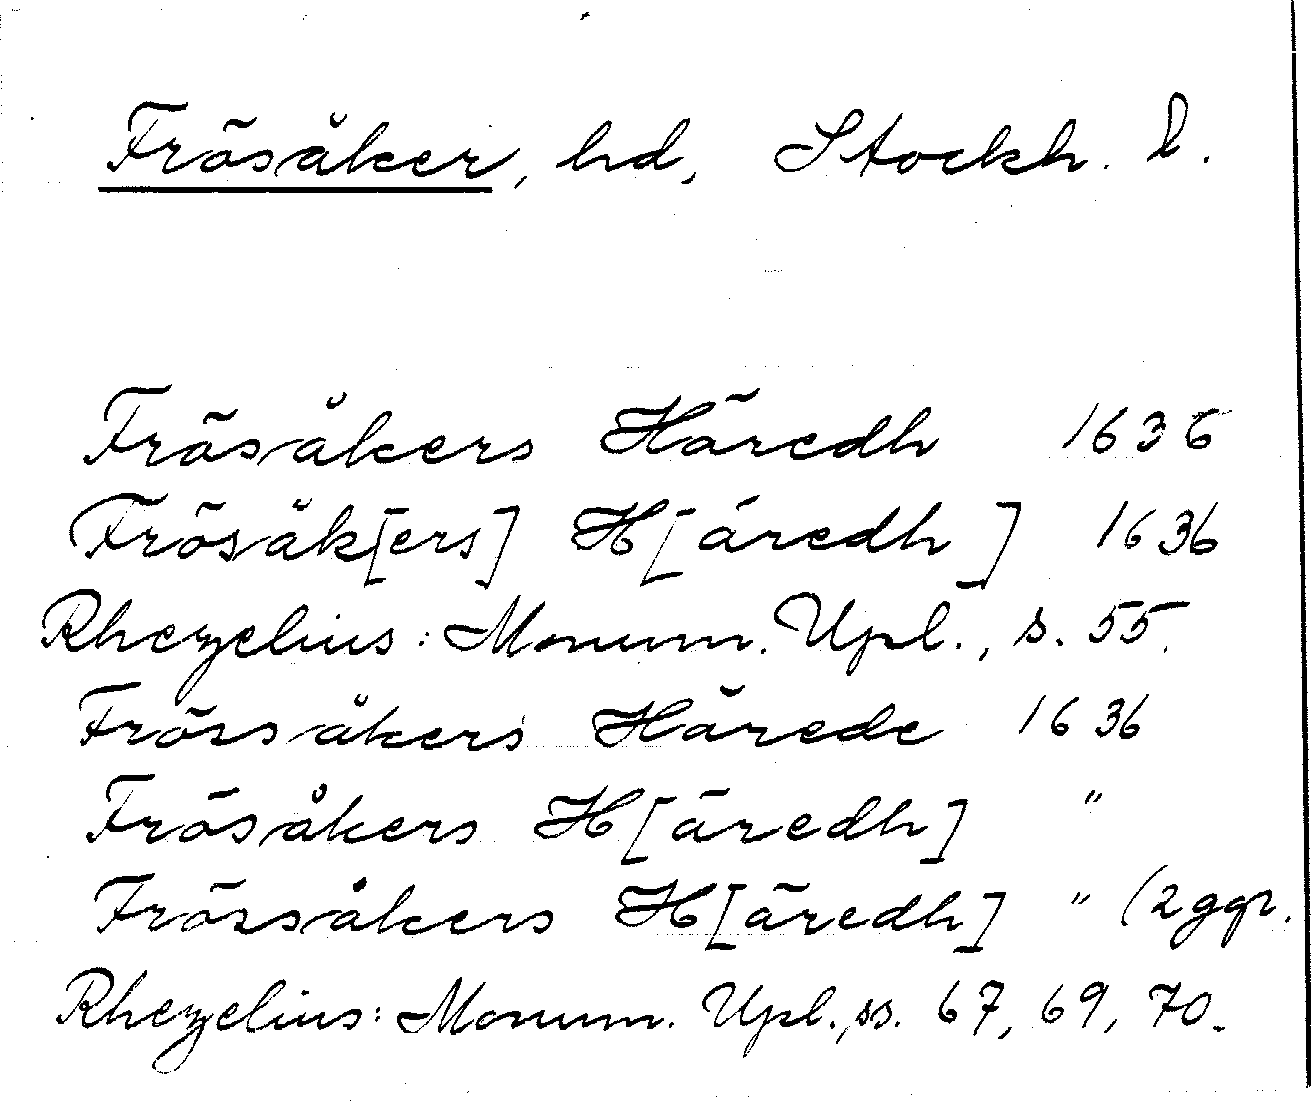 Frösåker, hd, Stockh. l.
Frösåkers Häredh 1636
Frösåk[ers] H[äredh] 1636
Rhezelius: Monum. Upl., s. 55.
Frössåkers Härede 1636
Frösåkers H[äredh] "
Frössåkers H[äredh] " (2 ggr.
Rhezelius: Monum. Upl., ss. 67, 69, 70.